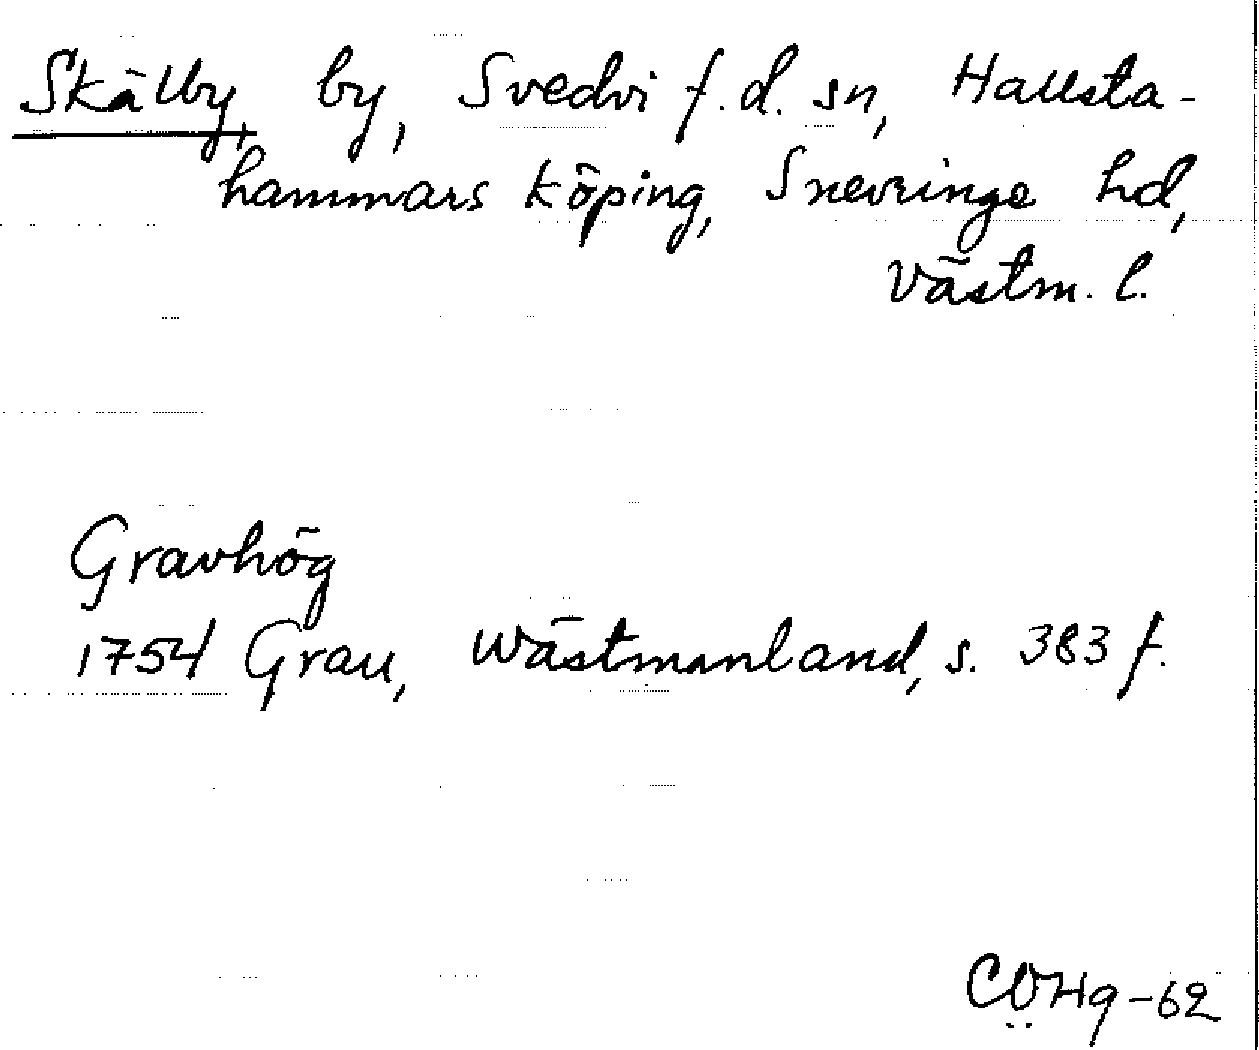 Skälby, by, Svedvi f.d. sn, Hallsta-
hammars köping, Snevringe hd,
Västm. l.
Gravhög
1754 Grau, Wästmanland, s. 383 f.
CÖHg-62